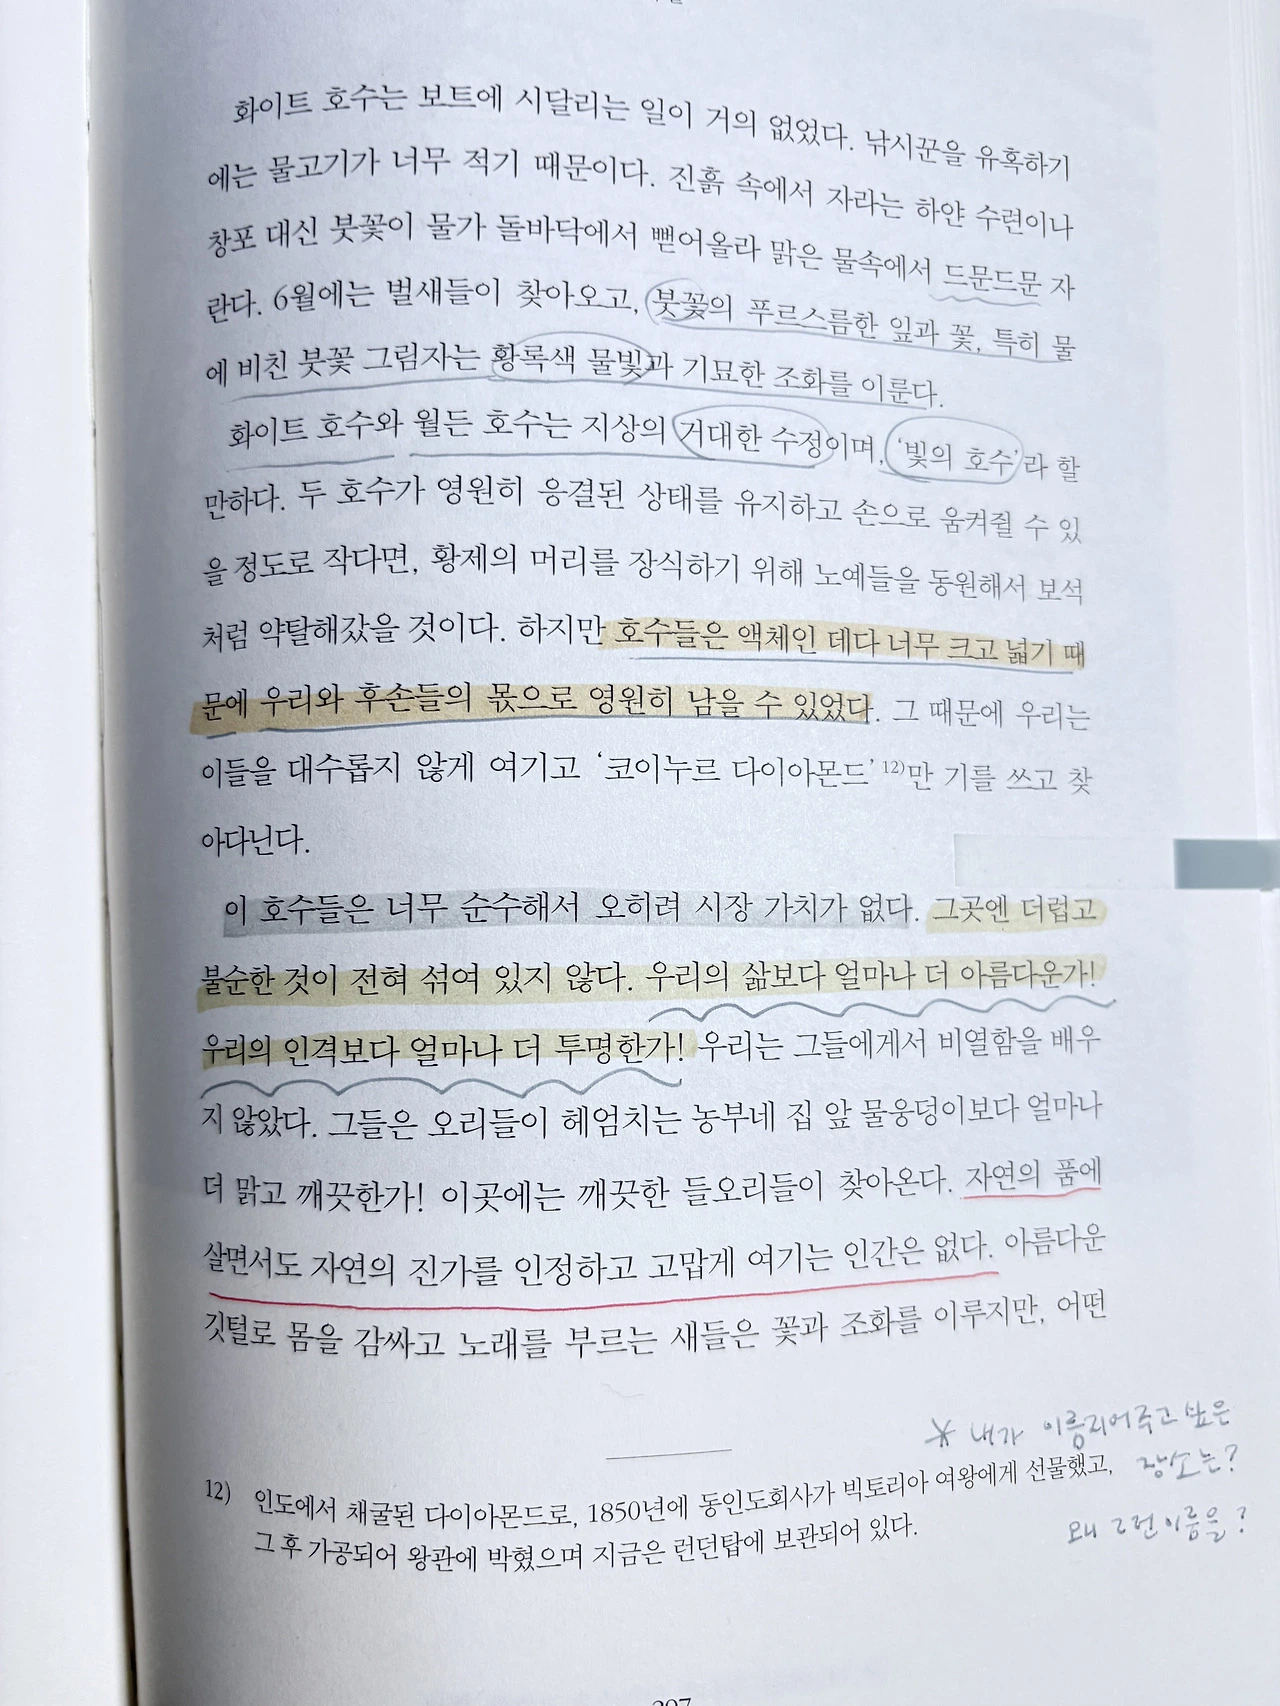 화이트 호수는 보트에 시달리는 일이 거의 없었다. 낚시꾼을 유혹하기
에는 물고기가 너무 적기 때문이다. 진흙 속에서 자라는 하얀 수련이나
창포 대신 붓꽃이 물가 돌바닥에서 뻗어올라 맑은 물속에서 드문드문 자
란다. 6월에는 벌새들이 찾아오고, 붓꽃의 푸르스름한 잎과 꽃, 특히 물
에 비친 붓꽃 그림자는 황록색 물빛과 기묘한 조화를 이룬다.
화이트 호수와 월든 호수는 지상의 거대한 수정이며, ‘빛의 호수’라 할
만하다. 두 호수가 영원히 응결된 상태를 유지하고 손으로 움켜쥘 수 있
을 정도로 작다면, 황제의 머리를 장식하기 위해 노예들을 동원해서 보석
처럼 약탈해갔을 것이다. 하지만 호수들은 액체인 데다 너무 크고 넓기 때
문에 우리와 후손들의 몫으로 영원히 남을 수 있었다. 그 때문에 우리는
이들을 대수롭지 않게 여기고 ‘코이누르 다이아몬드’12)만 기를 쓰고 찾
아다닌다.
이 호수들은 너무 순수해서 오히려 시장 가치가 없다. 그곳엔 더럽고
불순한 것이 전혀 섞여 있지 않다. 우리의 삶보다 얼마나 더 아름다운가!
우리의 인격보다 얼마나 더 투명한가! 우리는 그들에게서 비열함을 배우
지 않았다. 그들은 오리들이 헤엄치는 농부네 집 앞 물웅덩이보다 얼마나
더 맑고 깨끗한가! 이곳에는 깨끗한 들오리들이 찾아온다. 자연의 품에
살면서도 자연의 진가를 인정하고 고맙게 여기는 인간은 없다. 아름다운
깃털로 몸을 감싸고 노래를 부르는 새들은 꽃과 조화를 이루지만, 어떤
* 내가 이름지어주고 싶은
장소는?
왜 그런 이름을?
12) 인도에서 채굴된 다이아몬드로, 1850년에 동인도회사가 빅토리아 여왕에게 선물했고,
그 후 가공되어 왕관에 박혔으며 지금은 런던탑에 보관되어 있다.